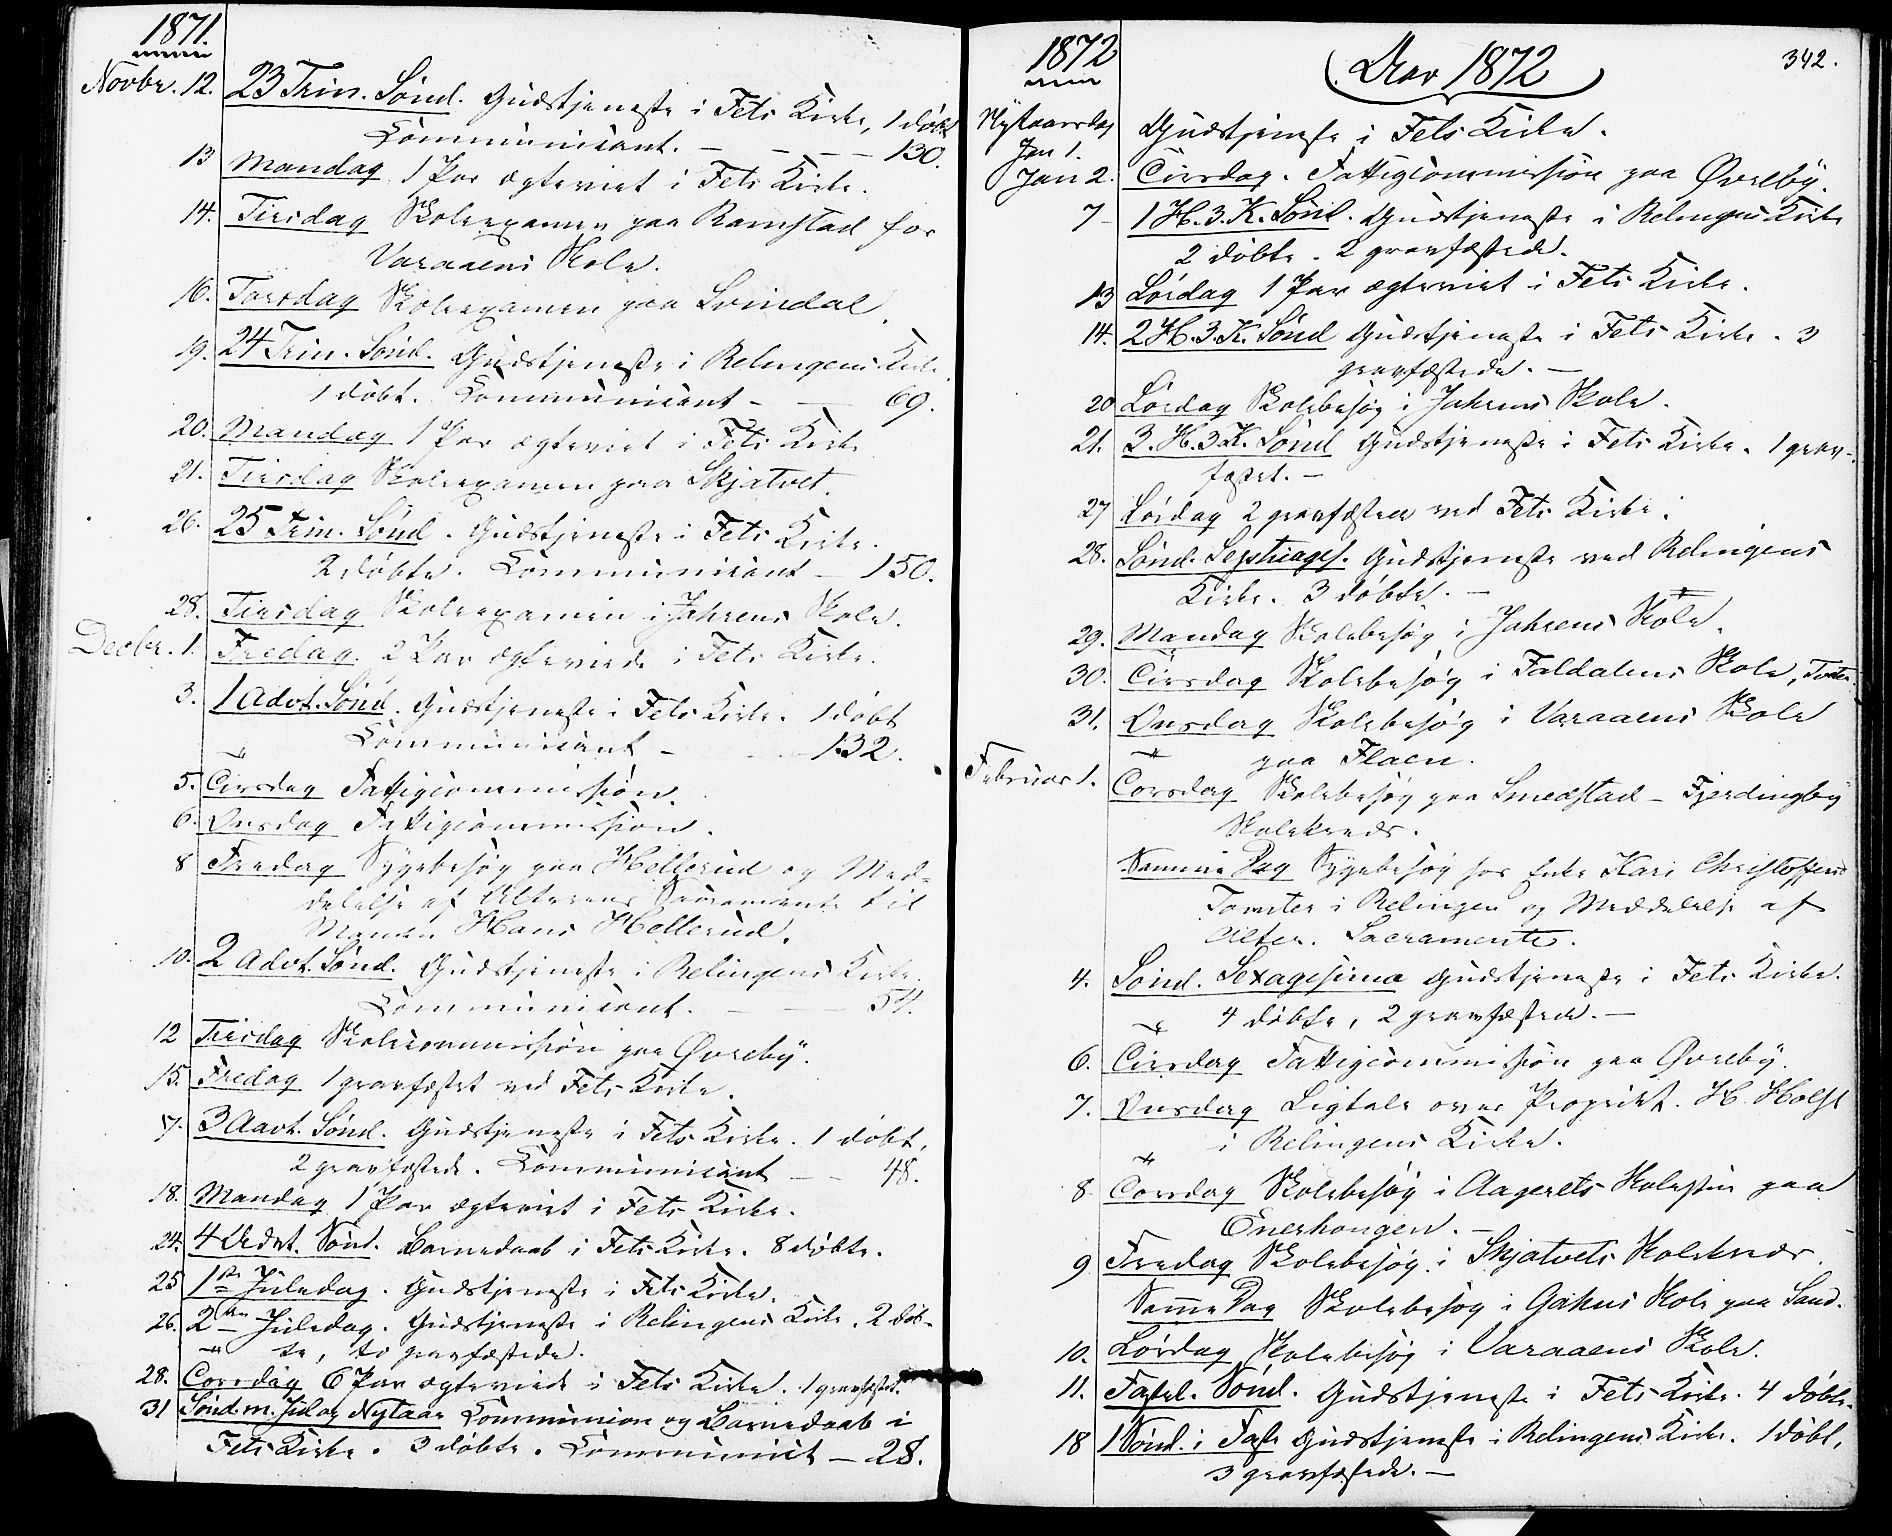 1871.
Novbr. 12. 23 Trin. Sønd. Gudstjeneste i Fets Kirke, 1 døbt
Communicant. — — — — 130.
13 Mandag 1 Par ægteviet i Fets Kirke.
14. Tirsdag Skoleexamen paa Ramstad for
Varaaens Skole.
16. Torsdag Skoleexamen paa Svindal.
19. 24 Trin. Sønd. Gudstjeneste i Relingens Kirke.
1 døbt. Communicant — — 69.
20. Mandag 1 Par ægteviet i Fets Kirke
21. Tirsdag Skoleexamen paa Skjatvet.
26. 25 Trin. Sønd. Gudstjeneste i Fets Kirke.
2 døbte. Communicant — 150.
28. Tirsdag Skoleexamen i Jahrens Skole.
Decbr. 1. Fredag. 2 Par ægteviede i Fets Kirke.
3. 1 Advt. Sønd. Gudstjeneste i Fets Kirke. 1 døbt
Communicant — 132.
5. Tirsdag Fattigcommission.
6. Onsdag Fattigcommission.
8 Fredag Sygebesøg paa Hellerud og Med-
delelse af Alterens Sacramente til
Manden Hans Hellerud.
10. 2 Advt. Sønd. Gudstjeneste i Relingens Kirke.
Communicant. — — — 54.
12 Tirsdag Skolecommission paa Øvreby.
15. Fredag 1 gravfæstet ved Fets Kirke.
17. 3 Advt. Sønd. Gudstjeneste i Fets Kirke. 1 døbt,
2 gravfæstede. Communicant — — 48.
18. Mandag 1 Par ægteviet i Fets Kirke.
24. 4 Advt. Sønd. Barnedaab i Fets Kirke. 8 døbte.
25 1ste Juledag. Gudstjeneste i Fets Kirke.
26. 2den Juledag. Gudstjeneste i Relingens Kirke. 2 døb-
te, to gravfæstede.
28. Torsdag 6 Par ægteviede i Fets Kirke. 1 gravfæstet.
31 Sønd. m. Jul og Nytaar Communion og Barnedaab i
Fets Kirke. 3 døbte. Communict — 28.
342.
1872
Aar 1872
Nytaarsdag Gudstjeneste i Fets Kirke.
Jan 1.
Jan 2. Tirsdag. Fattigcommission paa Øvreby.
7 – 1 H. 3. K. Sønd. Gudstjeneste i Relingens Kirke
2 døbte. 2 gravfæstede.
13 Lørdag 1 Par ægteviet i Fets Kirke.
14. 2 H. 3. K. Sønd Gudstjeneste i Fets Kirke. 3
gravfæstede. —
20 Lørdag Skolebesøg i Jahrens Skole.
21. 3. H. 3 K. Sønd Gudstjeneste i Fets Kirke. 1 grav-
fæstet. —
27 Lørdag 2 gravfæstede ved Fets Kirke.
28. Sønd. Septuages. Gudstjeneste ved Relingens
Kirke. 3 døbte. —
29. Mandag Skolebesøg i Jahrens Skole.
30. Tirsdag Skolebesøg i Faldalens Skole,
31. Onsdag Skolebesøg i Varaaens Skole
paa Flaen.
Februar 1. Torsdag Skolebesøg paa Smedstad – Fjerdingby
Skolekreds.
Samme Dag Sygebesøg hos Enke Kari Christoffersd
Tomter i Relingen og Meddelelse af
Alter. Sacramente.
4. Sønd. Sexagesima Gudstjeneste i Fets Kirke.
4 døbte, 2 gravfæstede. —
6. Tirsdag Fattigcommission paa Øvreby.
7. Onsdag Ligtale over Propriet. H. Holst
i Relingens Kirke.
8 Torsdag Skolebesøg i Aagerets Skolestue paa
Enerhougen. —
9 Fredag Skolebesøg i Skjatvets Skolekreds.
Samme Dag Skolebesøg i Gahus Skole paa Sand.
10. Lørdag Skolebesøg i Varaaens Skole.
11. Fastel. Sønd. Gudstjeneste i Fets Kirke. 4 døbte.
18 1 Sønd. i Faste Gudstjeneste i Relingens Kirke. 1 døbt,
3 gravfæstede. —